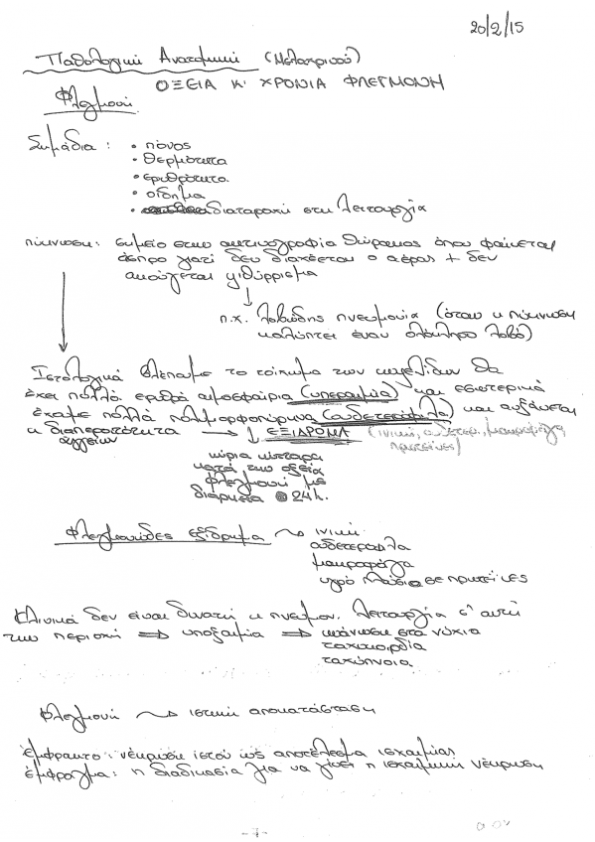 20/2/15
Παθολογική Ανατομική (Μελαχρινού)
ΟΞΕΙΑ Κ' ΧΡΟΝΙΑ ΦΛΕΓΜΟΝΗ
Φλεγμονή
Σημάδια : • πόνος
• θερμότητα
• ερυθρότητα
• οίδημα
• διαταραχή στη λειτουργία
πύκνωση: σημείο στην ακτινογραφία θώρακος όπου φαίνεται
άσπρο γιατί δεν διαχέεται ο αέρας + δεν
ακούγεται ψιθύρισμα
π.χ. λοβώδης πνευμονία (όταν η πύκνωση
καλύπτει έναν ολόκληρο λοβό)
Ιστολογικά βλέπαμε το τοίχωμα των κυψελίδων θα
έχει πολλά ερυθρά αιμοσφαίρια (υπεραιμία) και εσωτερικά
έχουμε πολλά πολυμορφοπύρηνα (ουδετερόφιλα) και αυξάνεται
η διαπερατότητα → ΕΞΙΔΡΩΜΑ (ινική, ουδετερ., μακροφάγα,
αγγείων πρωτεΐνες)
κύρια κύτταρα
κατά την οξεία
φλεγμονή με
διάρκεια 24h.
Φλεγμονώδες εξίδρωμα → ινική
ουδετερόφιλα
μακροφάγα
υγρό πλούσιο σε πρωτεΐνες
Κλινικά δεν είναι δυνατή η πνευμον. λειτουργία σ' αυτή
την περιοχή ⇒ υποξαιμία ⇒ κυάνωση στα νύχια
ταχυκαρδία
ταχύπνοια
Φλεγμονή → ιστική αποκατάσταση
έμφρακτο : νέκρωση ιστού ως αποτέλεσμα ισχαιμίας
έμφραγμα : η διαδικασία για να γίνει η ισχαιμική νέκρωση
- 7 -